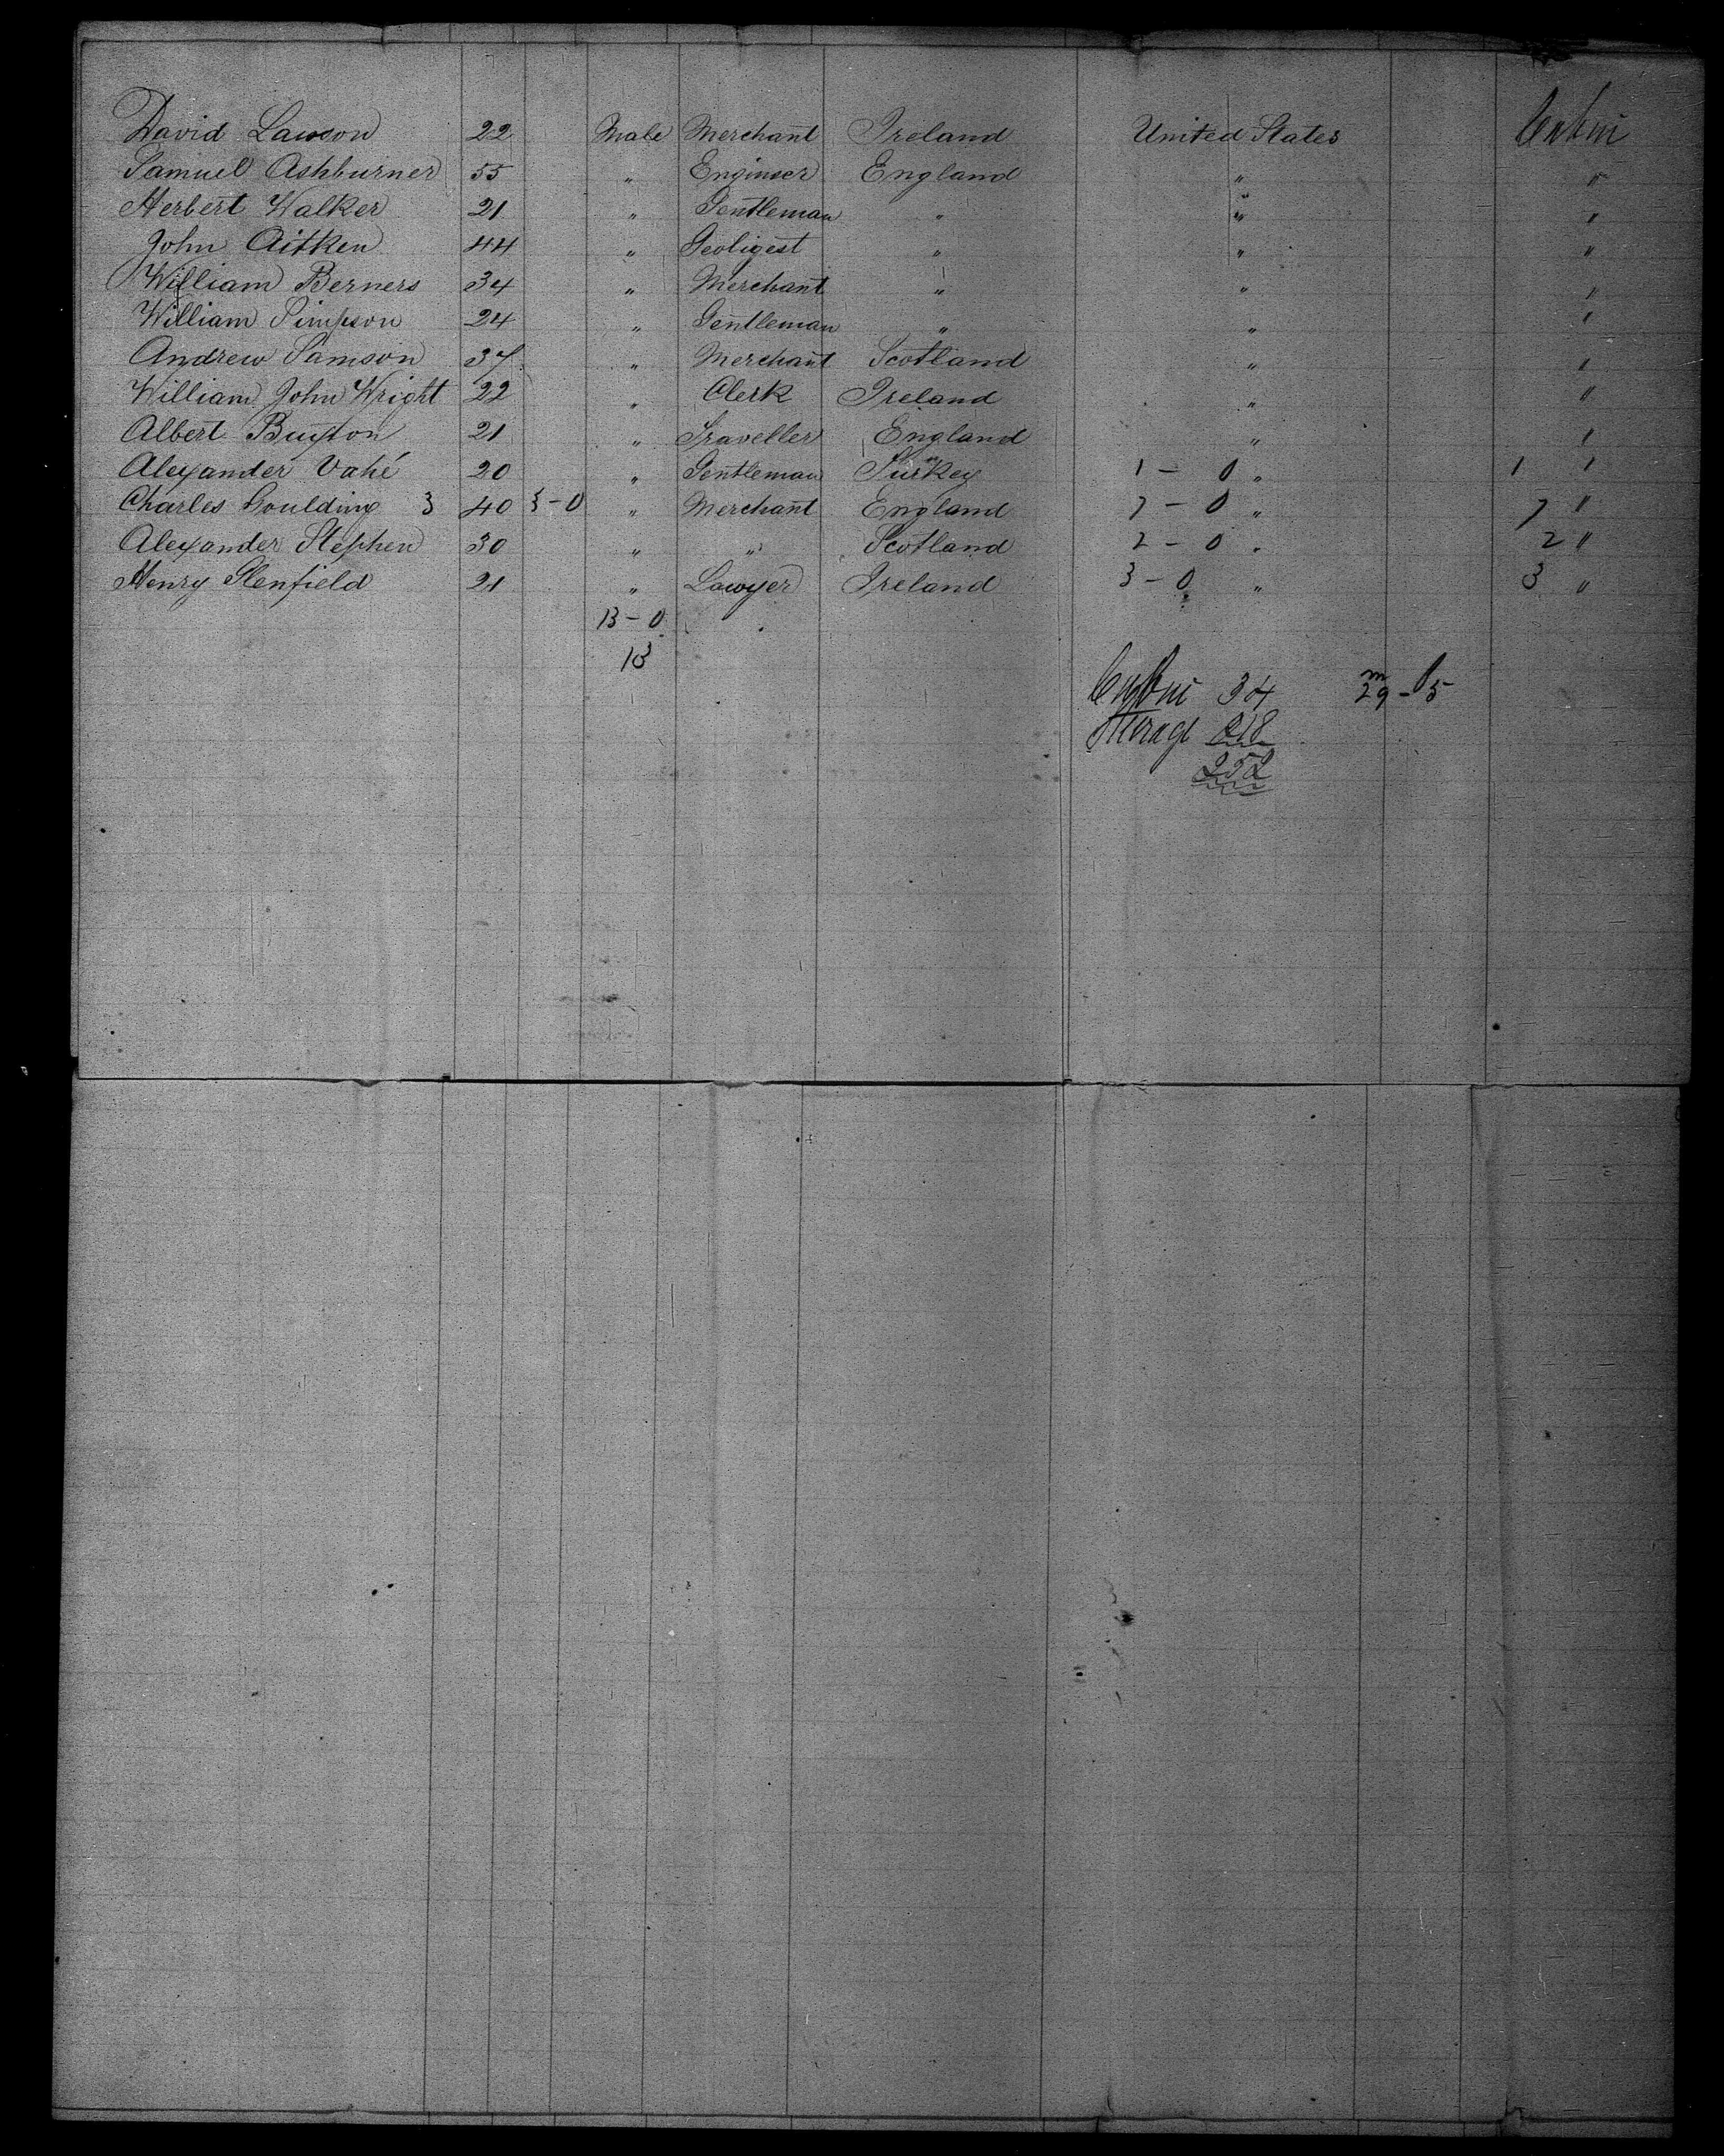 David Lawson 22 Male Merchant Ireland United States Cabin
Samuel Ashburner 55 " Engineer England " "
Herbert Walker 21 " Gentleman " " "
John Aitken 44 " Geoligest " " "
William Berners 34 " Merchant " " "
William Simpson 24 " Gentleman " " "
Andrew Samson 37 " Merchant Scotland " "
William John Wright 22 " Clerk Ireland " "
Albert Buxton 21 " Traveller England " "
Alexander Vahé 20 " Gentleman Turkey 1 - 0 " 1 "
Charles Goulding 3 40 3 - 0 " Merchant England 7 - 0 " 7 "
Alexander Stephen 30 " " Scotland 2 - 0 " 2 "
Henry Glenfield 21 " Lawyer Ireland 3 - 0 " 3 "
13 - 0
13
Cabin 34 m 29 - f 5
Sterage 218
252